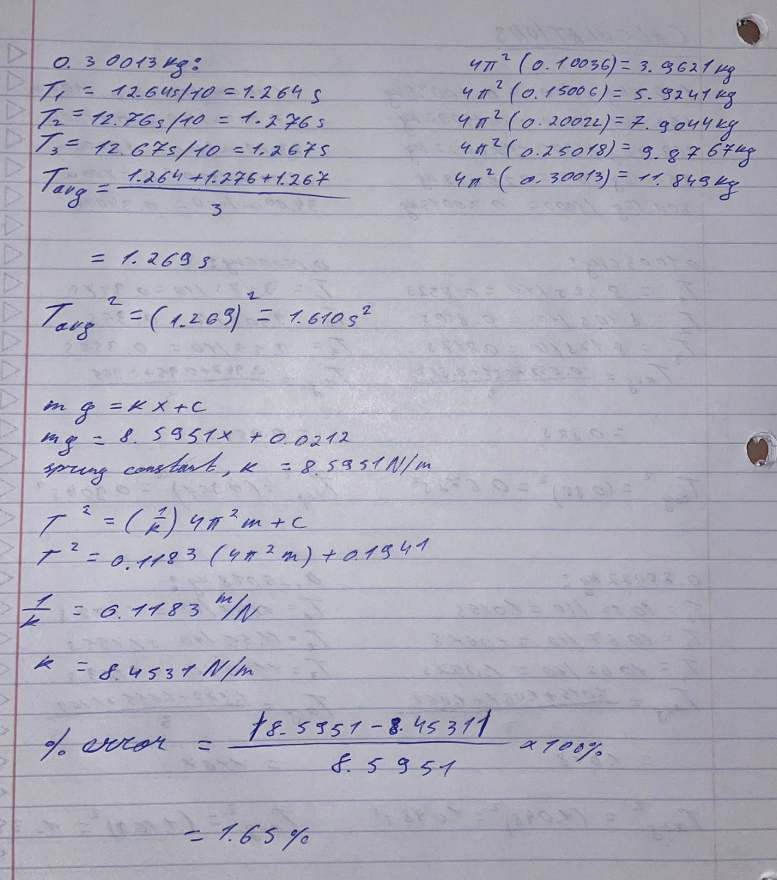 0.30013kg:
T₁ = 12.64s/10 = 1.264s
T₂ = 12.76s/10 = 1.276s
T₃ = 12.67s/10 = 1.267s
Tavg = (1.264+1.276+1.267)/3
= 1.269s
Tavg² = (1.269)² = 1.610s²
4π²(0.10036) = 3.9621kg
4π²(0.15006) = 5.9241kg
4π²(0.20022) = 7.9044kg
4π²(0.25018) = 9.8767kg
4π²(0.30013) = 11.849kg
mg = kx+c
mg = 8.5951x + 0.0212
spring constant, k = 8.5951N/m
T² = (1/k) 4π²m + c
T² = 0.1183 (4π²m) + 0.1941
1/k = 0.1183 m/N
k = 8.4531 N/m
% error = |8.5951 - 8.4531|/8.5951 × 100%
= 1.65%